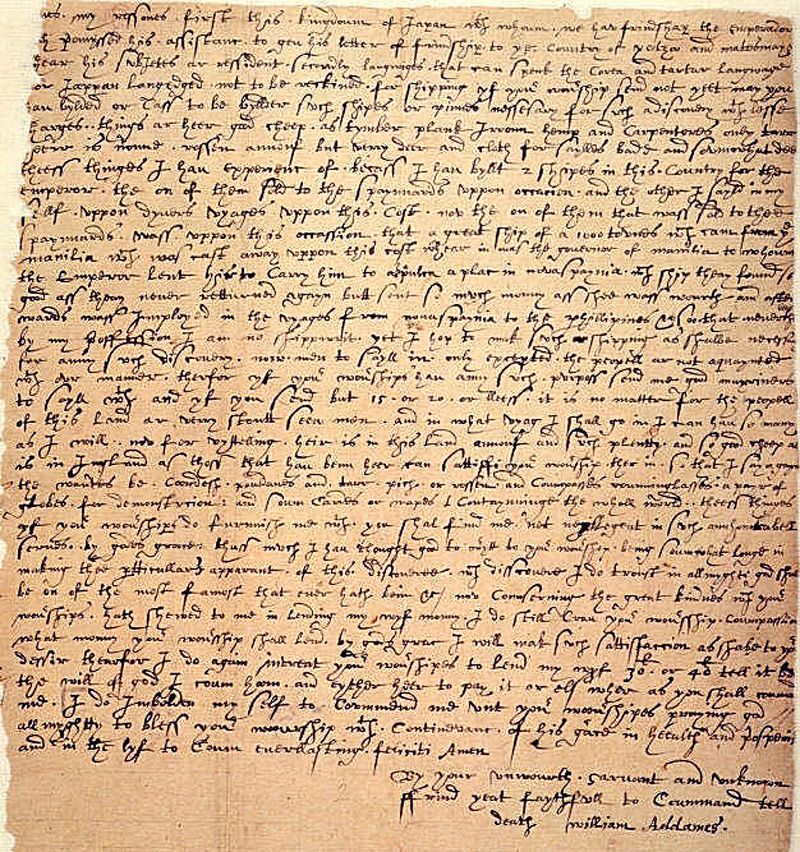 my ressones first this kingdoum of Japan wch whoum we hav frindshap the Emperador
promyssed his assistanc to gev his letter of frindship to ye Country of yelzoo and matesmaye
whear his subietes ar ressident secondly languiges that can speak the Corea and tartar language
for Jappan Langedged not to be reckined for shipping yf your worship send not yet may you
hau bylded or Cass to be bylded such shipes or pinnes nessesary for such adiscovery wth lesse
Charges things ar heer good cheep as tymber plank Irroun hemp and Carpentores only tarr
heer is noune rossen annouf but verry deer and cloth for sailles bade and somwhat deer
theess thinges I hau experienc of becass I hau bylt 2 shipes in this Country for the
emperour the on of them sold to the spaynnards vppon occacion and the other I sayld in my
self vppon dyvers vyages vppon this Cost now the on of them that wass sold to thee
spaynnards wass vppon this occassion that a great ship of a 1000 tounes wch cam from ye
manilia wch was cast away vppon this cost whear in was the governor of manilia to whoum
the Emperor lent hir to Carry him to a plac in nova spaynia wch ship theay found so
good ass theay never retturned agayn but sent so mvch money ass shee wass wourth and after
wards wass Imployed in the vyages from nova spaynia to the phillipines so that neverthe
by my proffession I am no shippwrit yet I hop to mak svch shipping as shalbe necess
for anny such discovery now men to sayll in only excepted the peopell ar not aquaynted
wth our manner therfor yf your wourships hau anny such purposs send me good marriners
to sayll wth and yf you send but 15 or 20 or lless it is no matter for the peopell
of this land ar very stoutt seea men and in what vyag I shall go in I can hau so many
as I will now for vytteling heir is in this Land annouf and such plentty and so good cheep as
is in Ingland as those that hau benn heer can sattisfi your wourship ther in so that I say agayn
the wantes be Cordesh pouldaues and tarr pich or rossen and Compasses rounninglasses a payr of
globes for demonstracion and soum Cardes or mapes Contaynninge the wholl world theess thinges
yf your wourships do furnnish me wth you shal find me not neglegent in such an honorabell
serves by godes grace thuss mvch I hau thought good to writ to your wourship being soumwhat longe in
making thee pertticullars apparant of this discoverie wch disscoverie I do trust in allmyghti god should
be on of the most famost that ever hath benn now Consserning the great kindnes wch your
wourships hath shewed to me in lending my wyf money I do still Crau your wourship Coumpassion
what monny your wourship shall lend by gods grac I will mak such sattisfaccion as shabe to your
desier therfor I do again intreat your wourshipes to lend my wyf 30l or 40l tell it be
the will of god I coum hom and eyther heer to pay it or els wher as you shall coumma
me I do Imbolden my self to Commend me vnt your wourshipes praying god
allmyghtty to bless your wourship wth Continevanc of his grace in heallth and prosperiti
and in the lyf to Coum everlasting feliciti Amen
By your vnwourth servant and vnknoun
ffrind yeat faythfull to Coummand tell
death william Addames.